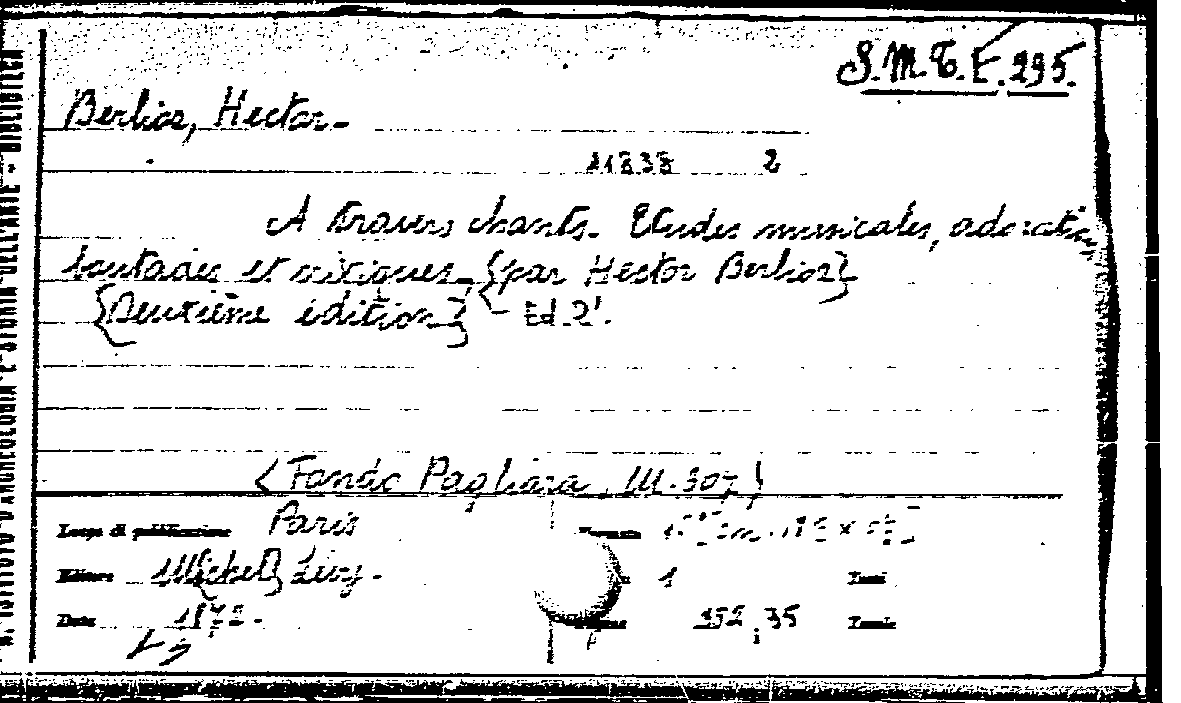 R. ISTITUTO D'ARCHEOLOGIA E STORIA DELL'ARTE - BIBLIOTECA
S.M.T.E. 295.
Berlioz, Hector-
21838 2
A travers chants. Etudes musicales, adorations
boutades et critiques - {par Hector Berlioz}
{Deuxième édition} - Ed. 2'.
(Fondo Pagliara, III. 307)
Luogo di pubblicazione Paris
Formato
Editore Michel Lévy -
1 Tomi
Data 1872 -
352, 35 Tavole